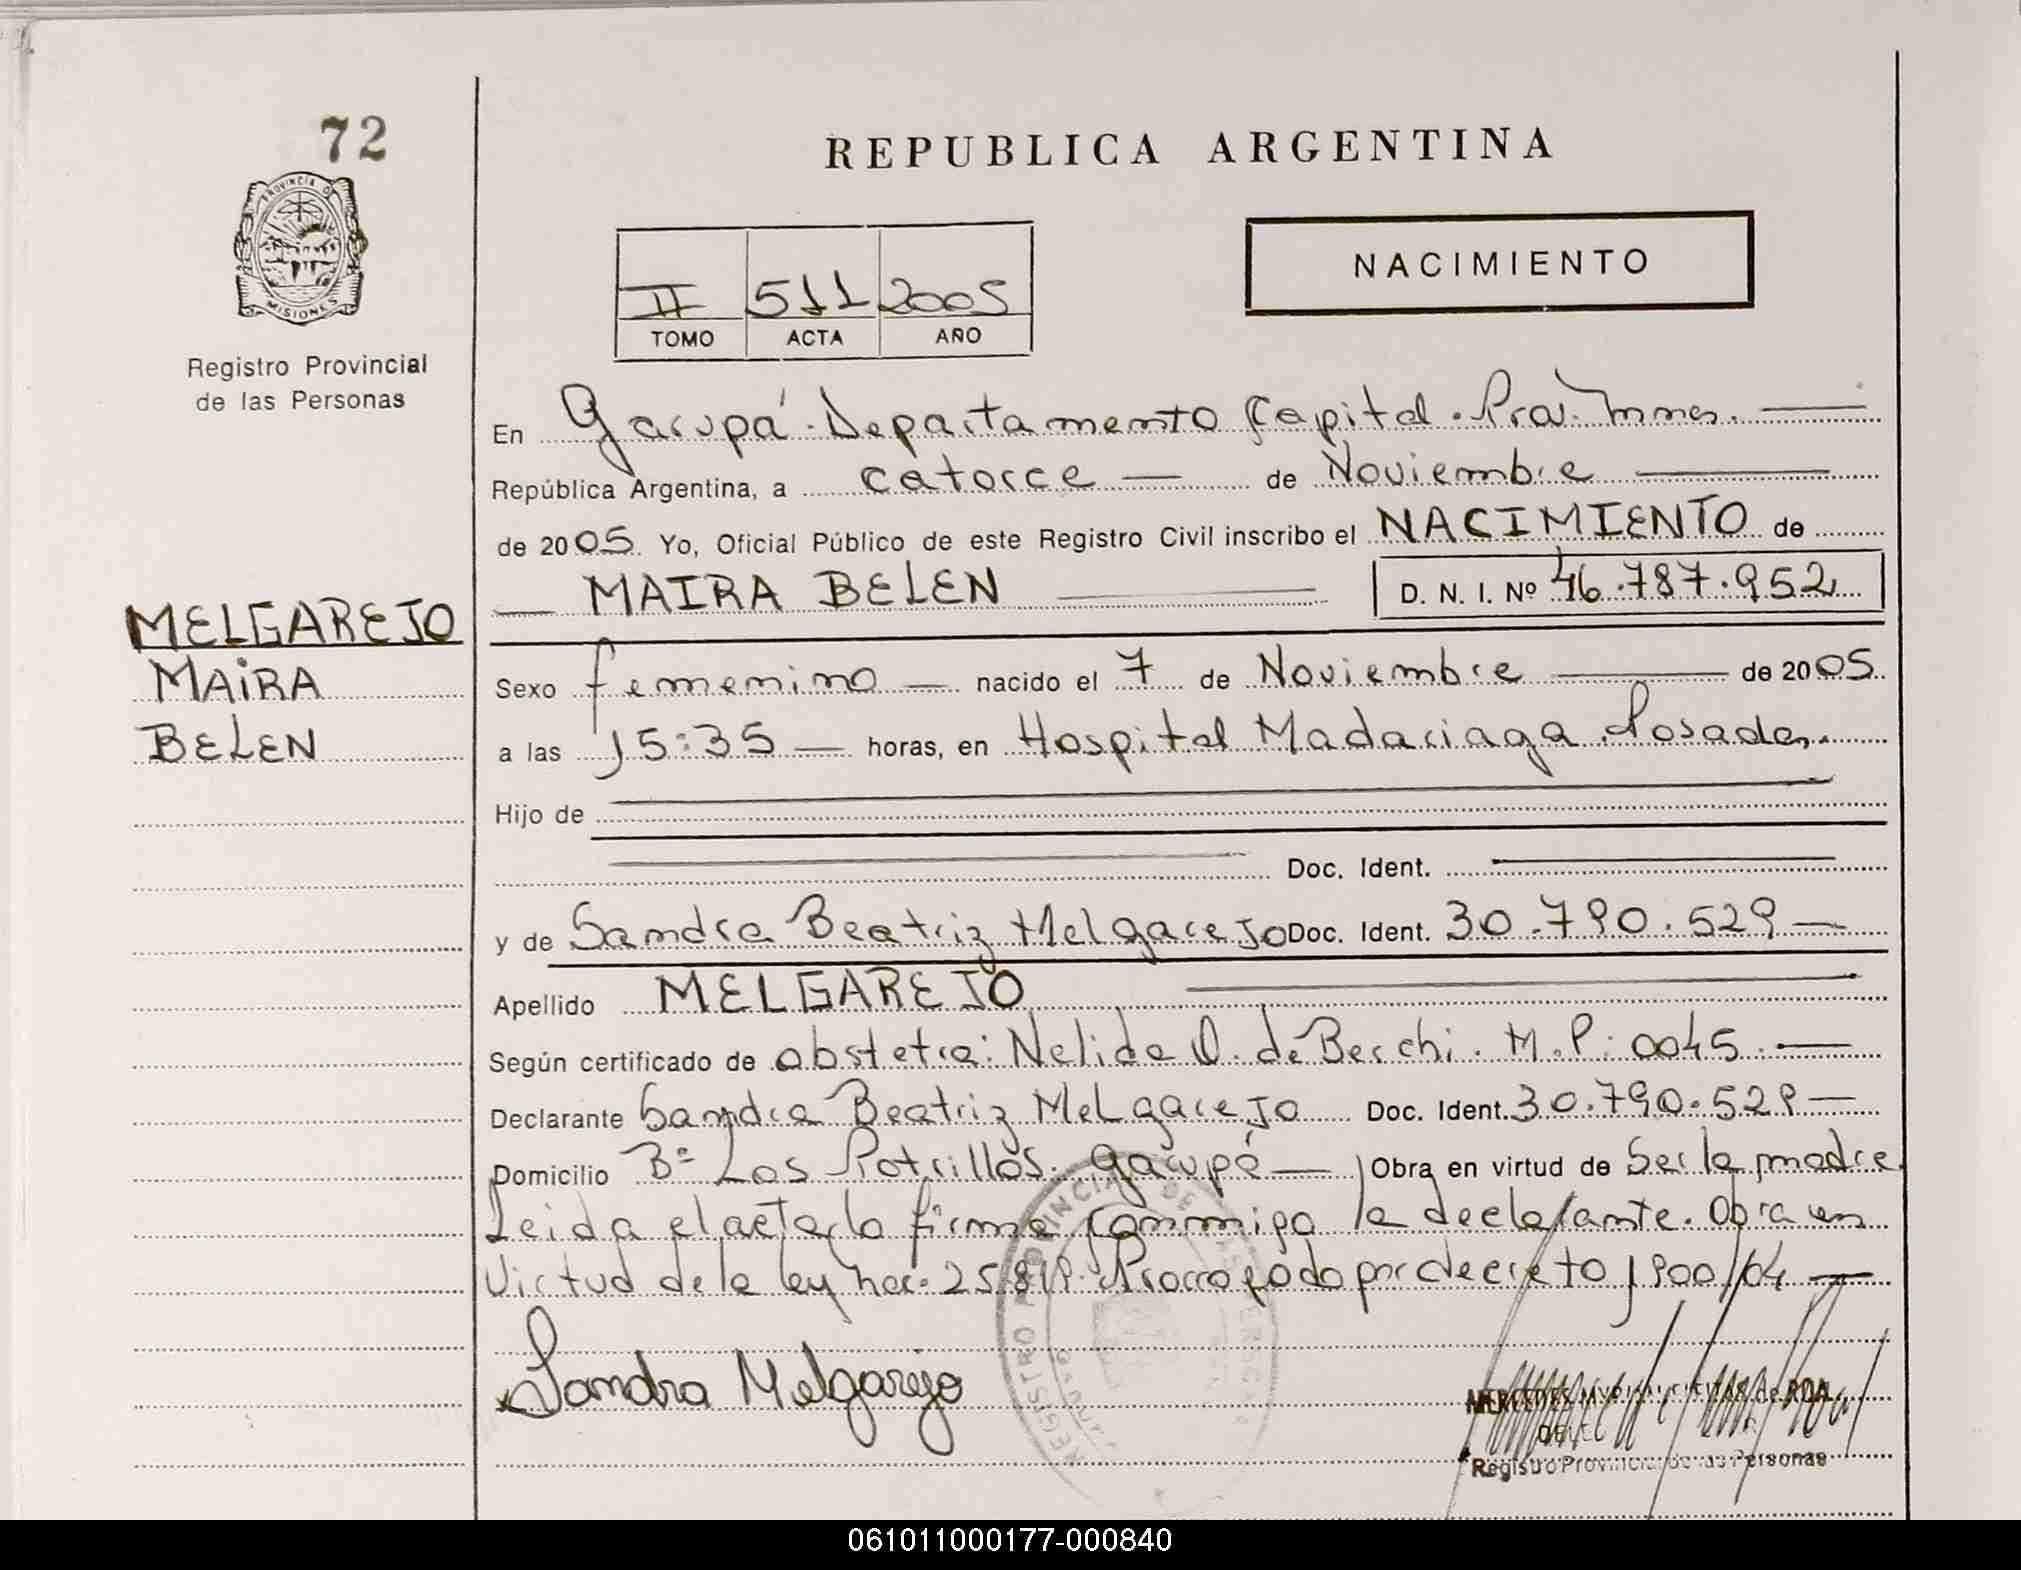 72
PROVINCIA DE
MISIONES
Registro Provincial
de las Personas
REPUBLICA ARGENTINA
II 511 2005
TOMO ACTA AÑO
NACIMIENTO
En Garupá. Departamento Capital. Mnes.
República Argentina, a catorce de Noviembre
de 2005. Yo, Oficial Público de este Registro Civil inscribo el NACIMIENTO de
MAIRA BELEN D. N. I. Nº 46.787.952
MELGAREJO
MAIRA
BELEN
Sexo femenino nacido el 7 de Noviembre de 2005.
a las 15:35 horas, en Hospital Madariaga. Posadas.
Hijo de
Doc. Ident.
y de Sandra Beatriz Melgarejo Doc. Ident. 30.790.529
Apellido MELGAREJO
Según certificado de obstetra: Nelida O. de Becchi. M.P: 0045.
Declarante Sandra Beatriz Melgarejo Doc. Ident. 30.790.529
Domicilio Bº Los Potrillos. Garupá Obra en virtud de Ser la madre.
Leida el acta la firma conmigo la declarante. Obra en
virtud de la ley nac. 25.819. por decreto 1900/04
Sandra Melgarejo
REGISTRO PROVINCIAL DE LAS PERSONAS
MERCEDES de ROA
Registro Provincial de las Personas
061011000177-000840